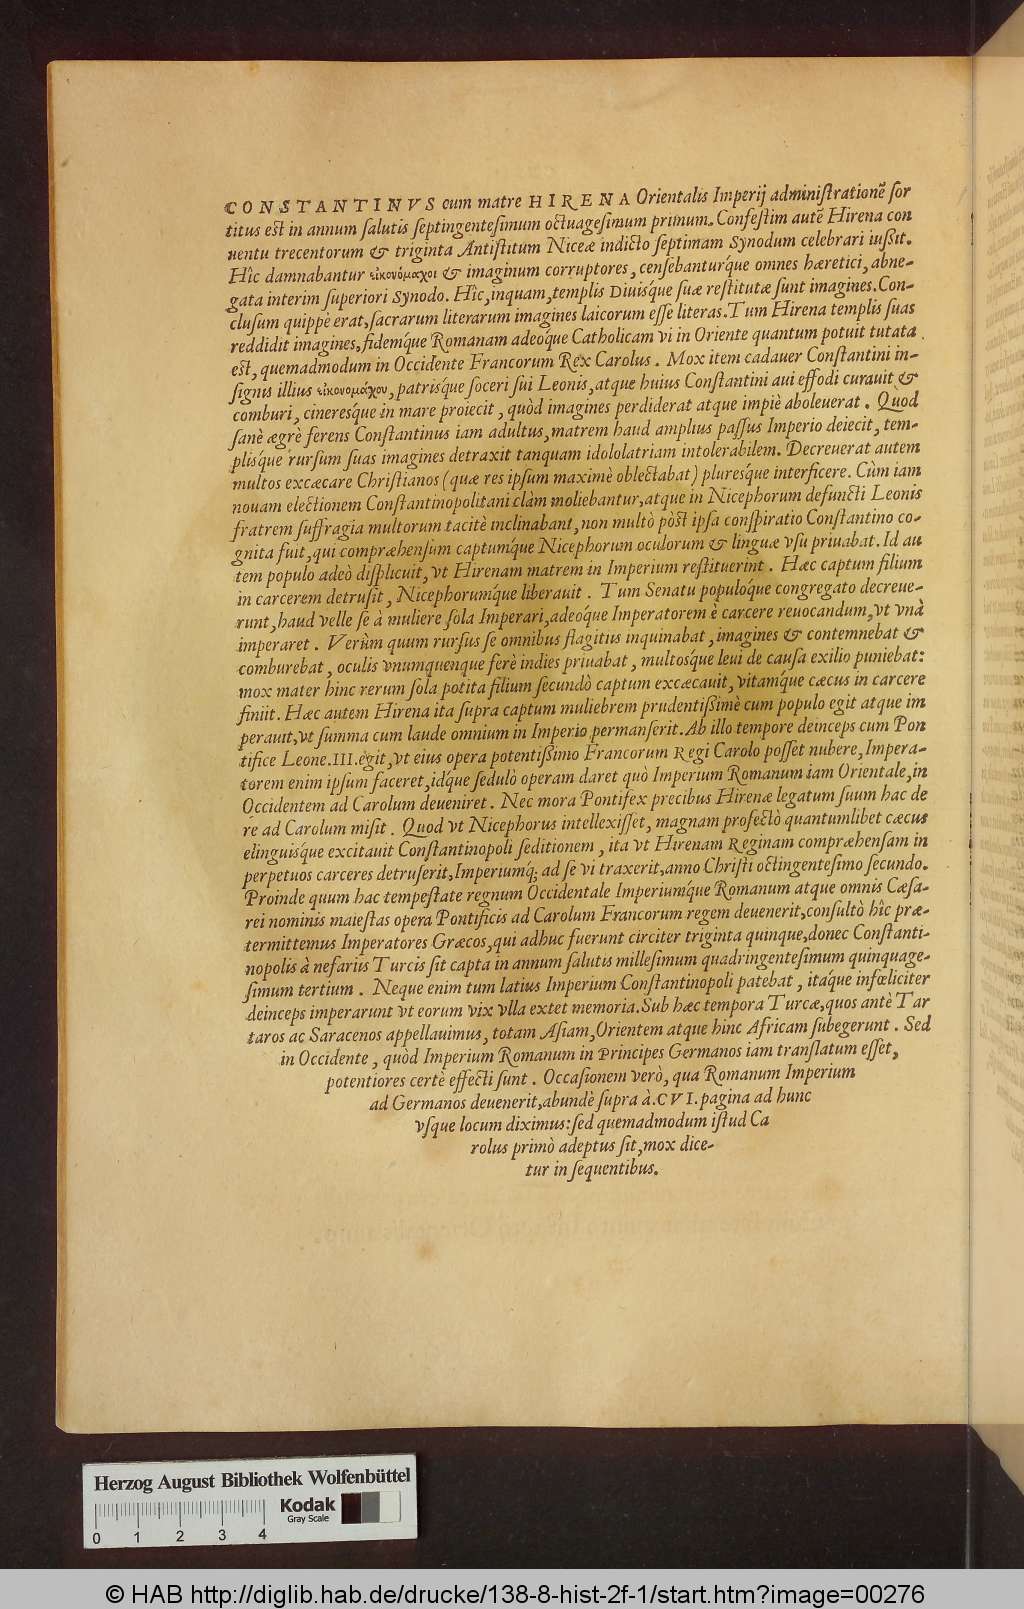 CONSTANTINVS cum matre HIRENA Orientalis Imperij administrationē sor
titus est in annum salutis septingentesimum octuagesimum primum. Confestim autē Hirena con
uentu trecentorum & triginta Antistitum Niceæ indicto septimam Synodum celebrari iussit.
Hîc damnabantur εἰκονόμαχοι & imaginum corruptores, censebanturq́ue omnes hæretici, abne-
gata interim superiori Synodo. Hîc, inquam, templis Diuisq́ue suæ restitutæ sunt imagines. Con-
clusum quippè erat, sacrarum literarum imagines laicorum esse literas. Tum Hirena templis suas
reddidit imagines, fidemq́ue Romanam adeoq́ue Catholicam vi in Oriente quantum potuit tutata
est, quemadmodum in Occidente Francorum Rex Carolus. Mox item cadauer Constantini in-
signis illius εἰκονομάχου, patrisque soceri sui Leonis, atque huius Constantini aui effodi curauit &
comburi, cineresq́ue in mare proiecit, quòd imagines perdiderat atque impiè aboleuerat. Quod
sanè ægrè ferens Constantinus iam adultus, matrem haud amplius passus Imperio deiecit, tem-
plisq́ue rursum suas imagines detraxit tanquam idololatriam intolerabilem. Decreuerat autem
multos excæcare Christianos (quæ res ipsum maximè oblectabat) pluresq́ue interficere. Cùm iam
nouam electionem Constantinopolitani clàm moliebantur, atque in Nicephorum defuncti Leonis
fratrem suffragia multorum tacitè inclinabant, non multò pòst ipsa conspiratio Constantino co-
gnita fuit, qui compræhensum captumq́ue Nicephorum oculorum & linguæ vsu priuabat. Id au
tem populo adeò displicuit, vt Hirenam matrem in Imperium restituerint. Hæc captum filium
in carcerem detrusit, Nicephorumq́ue liberauit. Tum Senatu populoq́ue congregato decreue-
runt, haud velle se à muliere sola Imperari, adeoq́ue Imperatorem è carcere reuocandum, vt vnà
imperaret. Verùm quum rursus se omnibus flagitus inquinabat, imagines & contemnebat &
comburebat, oculis vnumquenque ferè indies priuabat, multosq́ue leui de causa exilio puniebat:
mox mater hinc rerum sola potita filium secundò captum excæcauit, vitamq́ue cæcus in carcere
finiit. Hæc autem Hirena ita supra captum muliebrem prudentissimè cum populo egit atque im
perauit, vt summa cum laude omnium in Imperio permanserit. Ab illo tempore deinceps cum Pon
tifice Leone. III. egit, vt eius opera potentissimo Francorum Regi Carolo posset nubere, Impera-
torem enim ipsum faceret, idq́ue sedulò operam daret quò Imperium Romanum iam Orientale, in
Occidentem ad Carolum deueniret. Nec mora Pontifex precibus Hirenæ legatum suum hac de
re ad Carolum misit. Quod vt Nicephorus intellexisset, magnam profectò quantumlibet cæcus
elinguisq́ue excitauit Constantinopoli seditionem, ita vt Hirenam Reginam compræhensam in
perpetuos carceres detruserit, Imperiumq́; ad se vi traxerit, anno Christi octingentesimo secundo.
Proinde quum hac tempestate regnum Occidentale Imperiumq́ue Romanum atque omnis Cæsa-
rei nominis maiestas opera Pontificis ad Carolum Francorum regem deuenerit, consultò hîc præ-
termittemus Imperatores Græcos, qui adhuc fuerunt circiter triginta quinque, donec Constanti-
nopolis à nefarius Turcis sit capta in annum salutis millesimum quadringentesimum quinquage-
simum tertium. Neque enim tum latius Imperium Constantinopoli patebat, itaq́ue infœliciter
deinceps imperarunt vt eorum vix vlla extet memoria. Sub hæc tempora Turcæ, quos antè Tar
taros ac Saracenos appellauimus, totam Asiam, Orientem atque hinc Africam subegerunt. Sed
in Occidente, quòd Imperium Romanum in Principes Germanos iam translatum esset,
potentiores certè effecti sunt. Occasionem verò, qua Romanum Imperium
ad Germanos deuenerit, abundè supra à. CVI. pagina ad hunc
vsque locum diximus: sed quemadmodum istud Ca
rolus primò adeptus sit, mox dice-
tur in sequentibus.
Herzog August Bibliothek Wolfenbüttel
Kodak
Gray Scale
0 1 2 3 4
© HAB http://diglib.hab.de/drucke/138-8-hist-2f-1/start.htm?image=00276